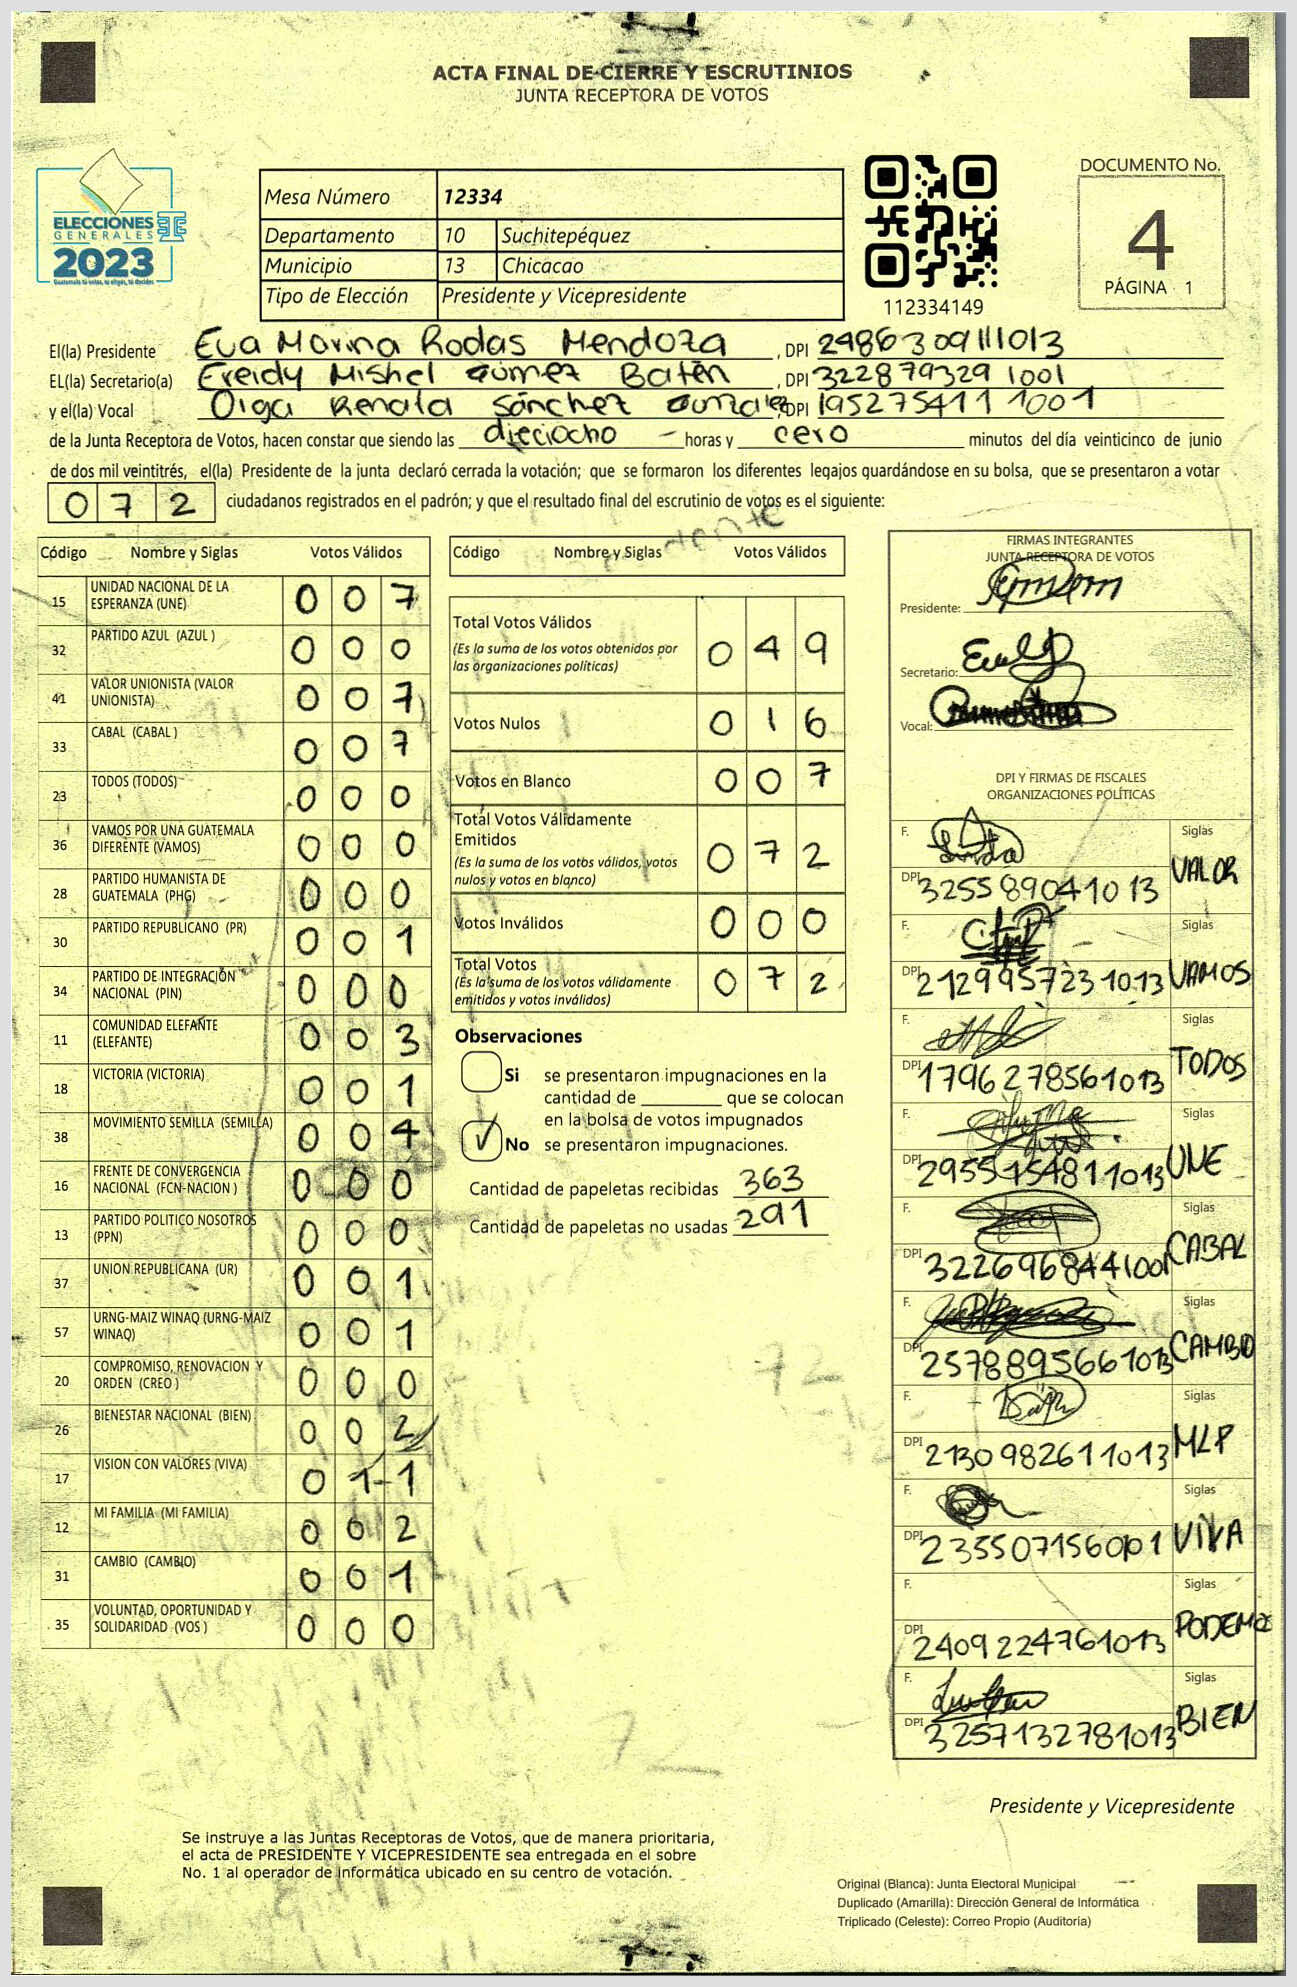 ACTA FINAL DE CIERRE Y ESCRUTINIOS
JUNTA RECEPTORA DE VOTOS
ELECCIONES
GENERALES
2023
Guatemala tú votas, tú eliges, tú decides
Mesa Número 12334
Departamento 10 Suchitepéquez
Municipio 13 Chicacao
Tipo de Elección Presidente y Vicepresidente
112334149
DOCUMENTO No.
4
PÁGINA 1
El(la) Presidente Eva Marina Rodas Mendoza , DPI 2486309111013
EL(la) Secretario(a) Ereidy Mishel Gómez Batén , DPI 3228793291001
y el(la) Vocal Olga Renata Sánchez Gonzalez, DPI 1952754111001
de la Junta Receptora de Votos, hacen constar que siendo las dieciocho horas y cero minutos del día veinticinco de junio
de dos mil veintitrés, el(la) Presidente de la junta declaró cerrada la votación; que se formaron los diferentes legajos guardándose en su bolsa, que se presentaron a votar
072 ciudadanos registrados en el padrón; y que el resultado final del escrutinio de votos es el siguiente:
Código Nombre y Siglas Votos Válidos
15 UNIDAD NACIONAL DE LA ESPERANZA (UNE) 0 0 7
32 PARTIDO AZUL (AZUL ) 0 0 0
41 VALOR UNIONISTA (VALOR UNIONISTA) 0 0 7
33 CABAL (CABAL ) 0 0 7
23 TODOS (TODOS) 0 0 0
36 VAMOS POR UNA GUATEMALA DIFERENTE (VAMOS) 0 0 0
28 PARTIDO HUMANISTA DE GUATEMALA (PHG) 0 0 0
30 PARTIDO REPUBLICANO (PR) 0 0 1
34 PARTIDO DE INTEGRACIÓN NACIONAL (PIN) 0 0 0
11 COMUNIDAD ELEFANTE (ELEFANTE) 0 0 3
18 VICTORIA (VICTORIA) 0 0 1
38 MOVIMIENTO SEMILLA (SEMILLA) 0 0 4
16 FRENTE DE CONVERGENCIA NACIONAL (FCN-NACION ) 0 0 0
13 PARTIDO POLITICO NOSOTROS (PPN) 0 0 0
37 UNION REPUBLICANA (UR) 0 0 1
57 URNG-MAIZ WINAQ (URNG-MAIZ WINAQ) 0 0 1
20 COMPROMISO, RENOVACION Y ORDEN (CREO ) 0 0 0
26 BIENESTAR NACIONAL (BIEN) 0 0 2
17 VISION CON VALORES (VIVA) 0 1 1
12 MI FAMILIA (MI FAMILIA) 0 0 2
31 CAMBIO (CAMBIO) 0 0 1
35 VOLUNTAD, OPORTUNIDAD Y SOLIDARIDAD (VOS ) 0 0 0
Código Nombre y Siglas Votos Válidos
Total Votos Válidos 0 4 9
(Es la suma de los votos obtenidos por
las organizaciones políticas)
Votos Nulos 0 1 6
Votos en Blanco 0 0 7
Total Votos Válidamente
Emitidos 0 7 2
(Es la suma de los votos válidos, votos
nulos y votos en blanco)
Votos Inválidos 0 0 0
Total Votos 0 7 2
(Es la suma de los votos válidamente
emitidos y votos inválidos)
Observaciones
Si se presentaron impugnaciones en la
cantidad de ________ que se colocan
en la bolsa de votos impugnados
✓ No se presentaron impugnaciones.
Cantidad de papeletas recibidas 363
Cantidad de papeletas no usadas 291
FIRMAS INTEGRANTES
JUNTA RECEPTORA DE VOTOS
Presidente:
Secretario:
Vocal:
DPI Y FIRMAS DE FISCALES
ORGANIZACIONES POLÍTICAS
F. Siglas
DPI 3255890411013 VALOR
F. Siglas
DPI 2129957231013 VAMOS
F. Siglas
DPI 1796278561013 TODOS
F. Siglas
DPI 2955154811013 UNE
F. Siglas
DPI 3226968441001 CABAL
F. Siglas
DPI 2578895661013 CAMBIO
F. Siglas
DPI 2130982611013 MLP
F. Siglas
DPI 235507156001 VIVA
F. Siglas
DPI 2409224761013 PODEMOS
F. Siglas
DPI 3257132781013 BIEN
Presidente y Vicepresidente
Se instruye a las Juntas Receptoras de Votos, que de manera prioritaria,
el acta de PRESIDENTE Y VICEPRESIDENTE sea entregada en el sobre
No. 1 al operador de informática ubicado en su centro de votación.
Original (Blanca): Junta Electoral Municipal
Duplicado (Amarilla): Dirección General de Informática
Triplicado (Celeste): Correo Propio (Auditoría)